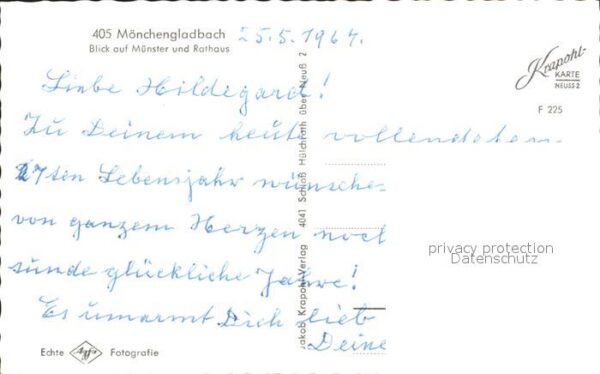 405 Mönchengladbach
Blick auf Münster und Rathaus
25.5.1964.
Krapohl-
KARTE
NEUSS 2
F 225
Liebe Hildegard!
Zu Deinem heute vollendeten
27ten Lebensjahr wünsche
von ganzem Herzen noch
sunde glückliche Jahre!
Es umarmt Dich lieb
Deine
Jakob Krapohl-Verlag 4041 Schloß Hülchrath über Neuß 2
privacy protection
Datenschutz
Echte Agfa Fotografie